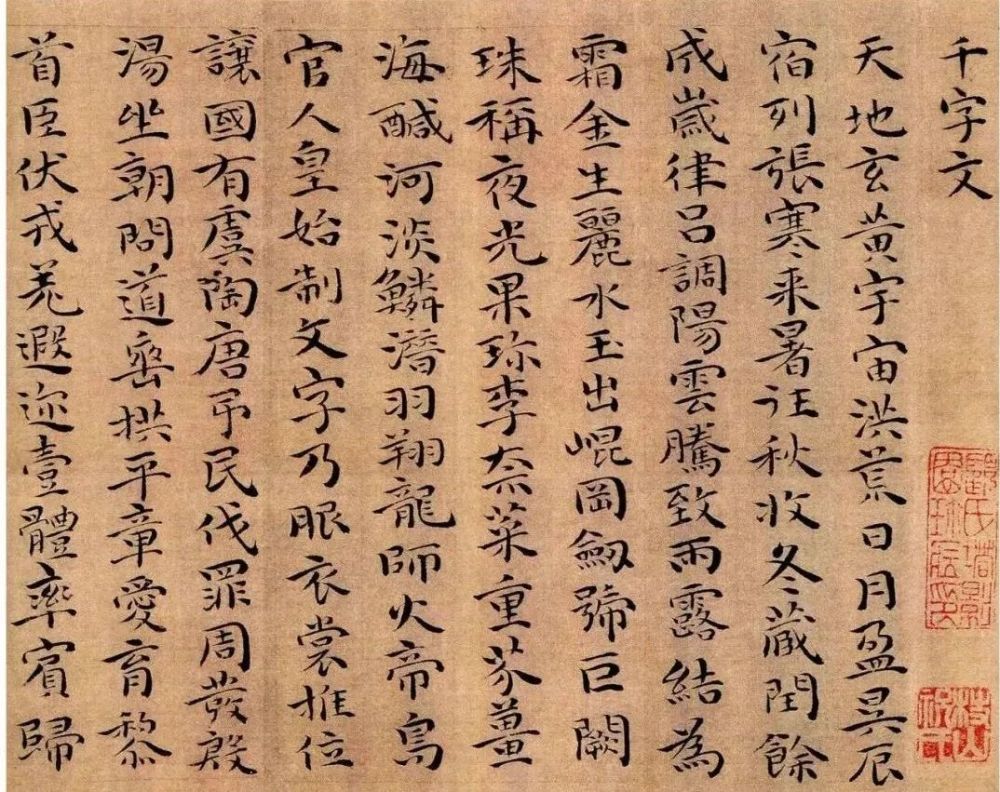 千字文
天地玄黄宇宙洪荒日月盈昃辰
宿列張寒来暑往秋收冬蔵閏餘
成歲律吕調陽雲騰致雨露結為
霜金生麗水玉出崐岡劔號巨闕
珠稱夜光果珎李柰菜重芥薑
海醎河淡鱗潛羽翔龍師火帝鳥
官人皇始制文字乃服衣裳推位
讓國有虞陶唐弔民伐罪周發殷
湯坐朝問道垂拱平章愛育黎
首臣伏戎羌遐迩壹體率賓歸